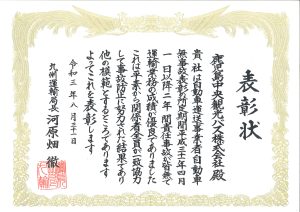 表彰状
鹿児島中央観光バス株式会社 殿
貴社は自動車運送事業者自動車
無事故表彰所定期間平成三十一年四月
一日以降二年間責任事故が皆無で
運輸業務の成績が優良でありました
これは平素から関係者全員が一致協力
して事故防止に努力された結果であり
他の模範とするところであります
よってこれを表彰します
令和三年八月三十一日
九州運輸局長 河原畑 徹